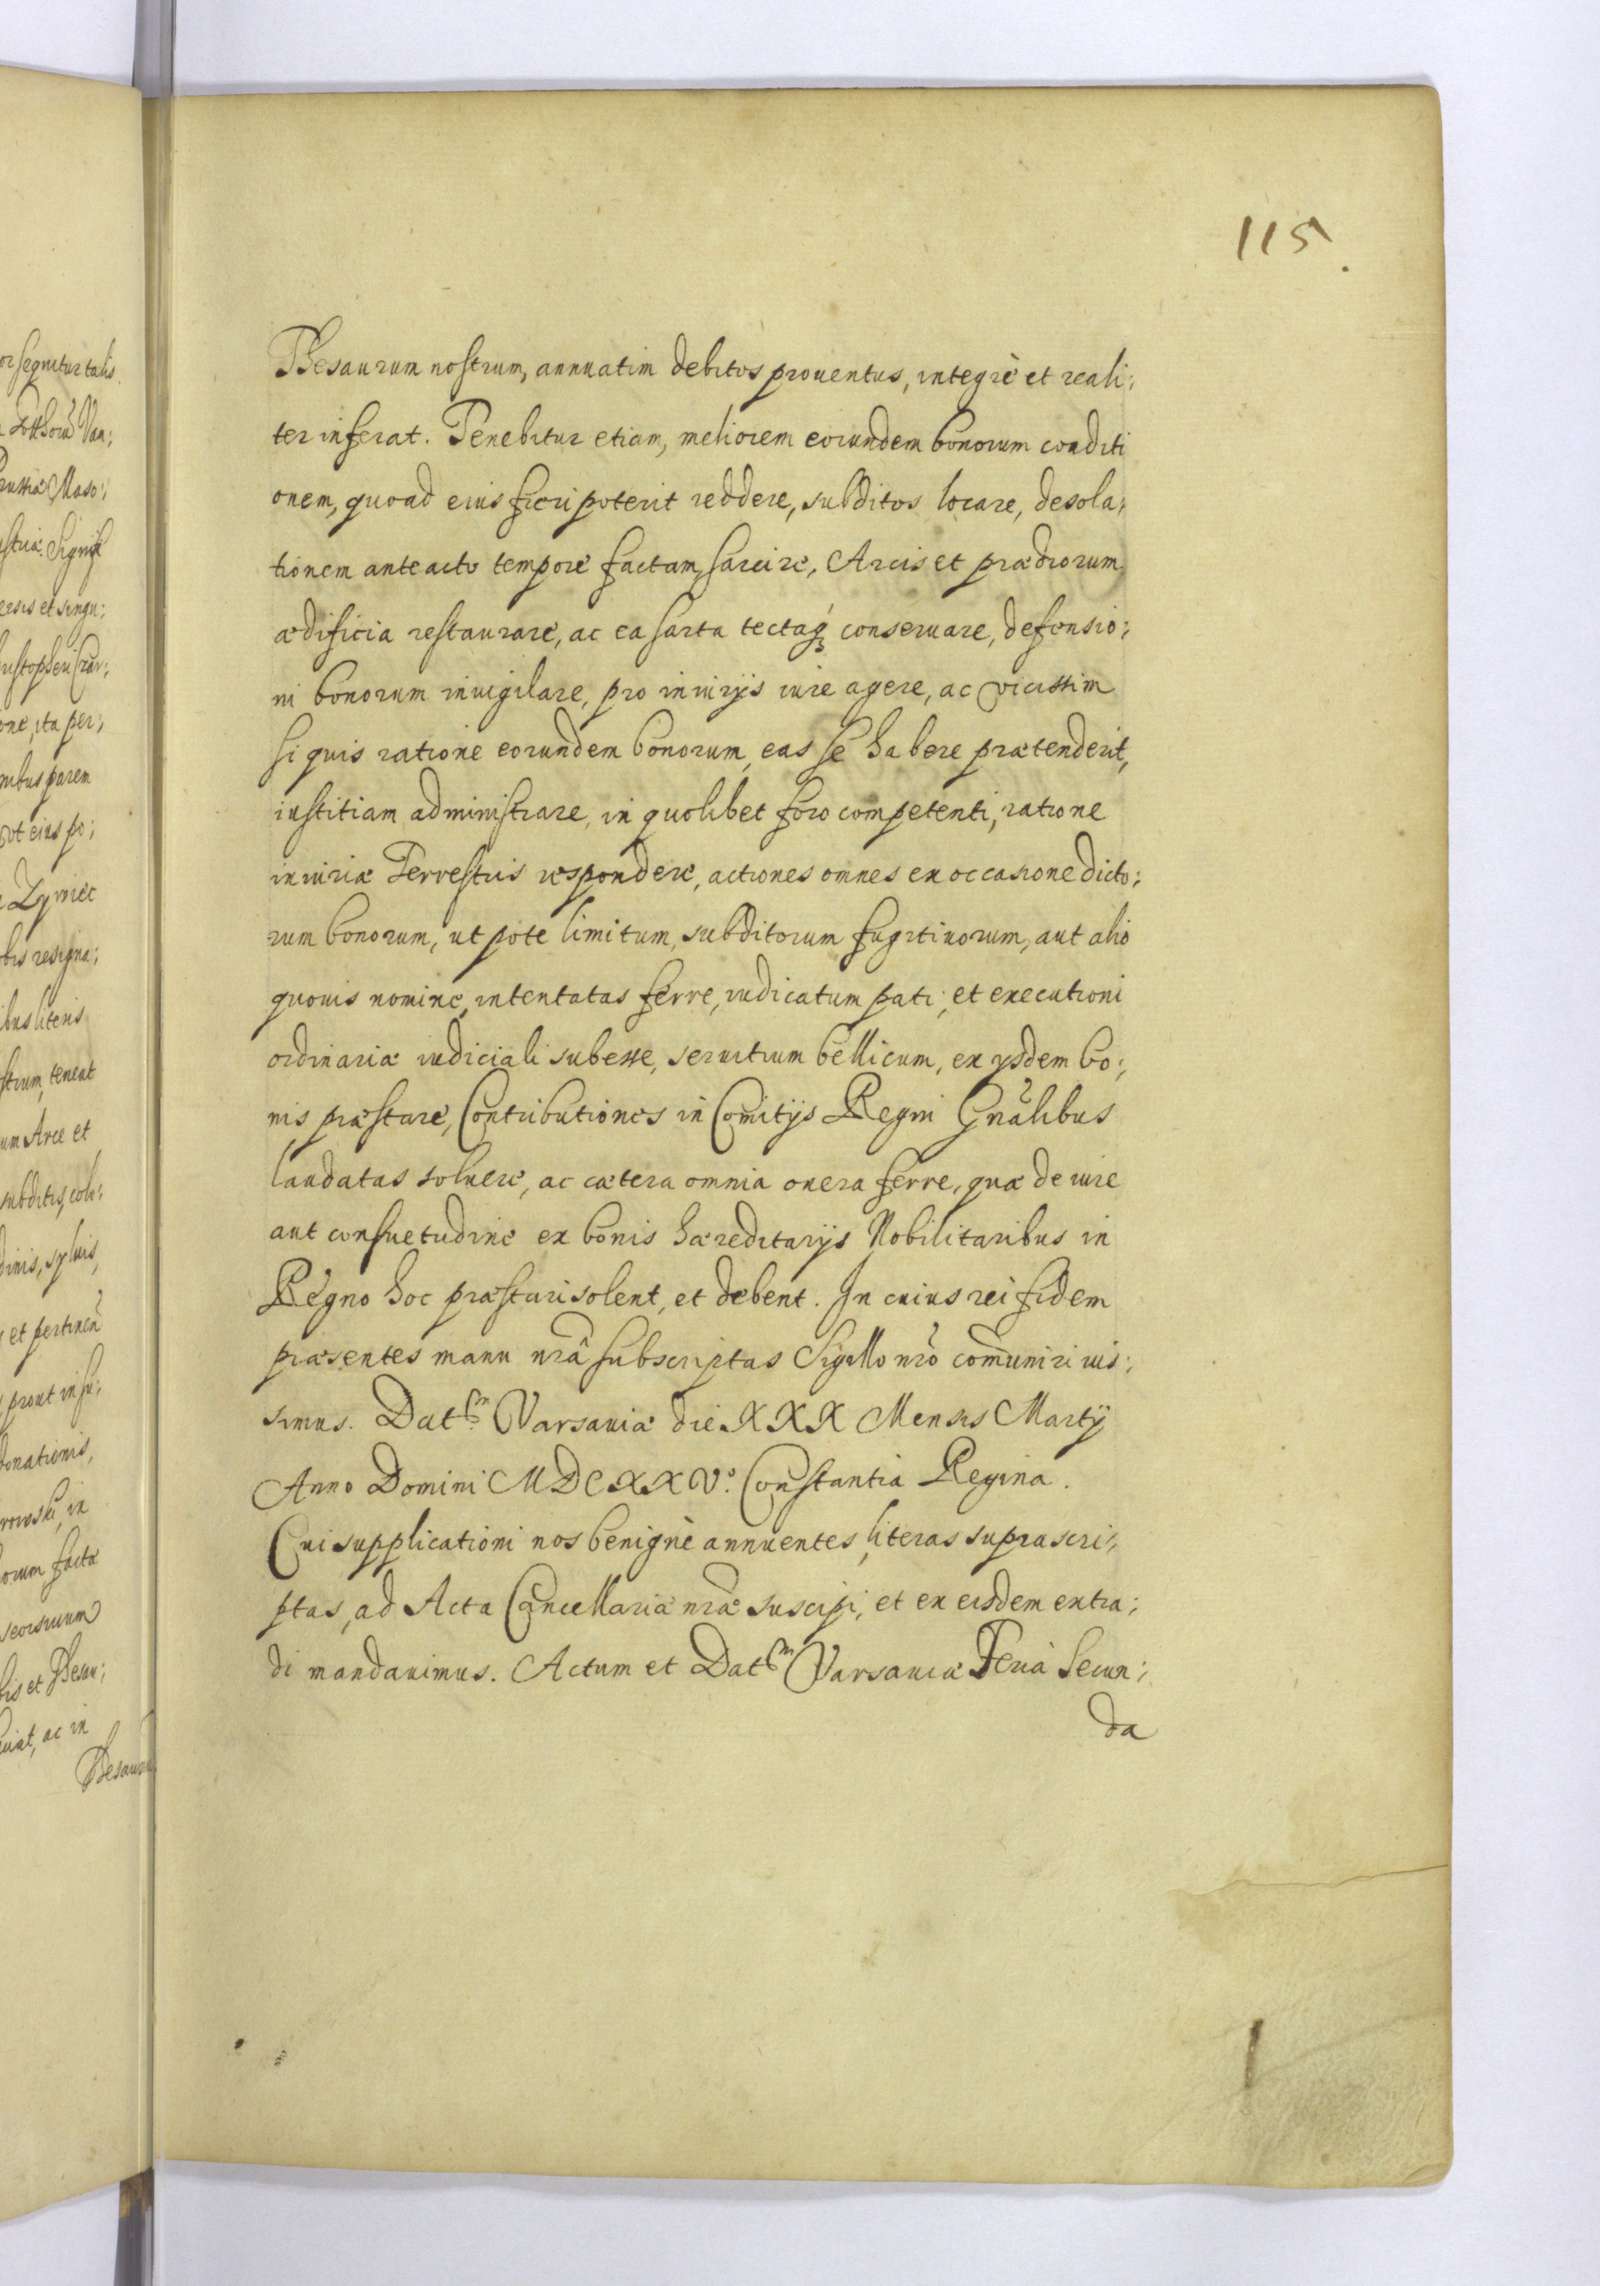 115.
Thesaurum nostrum, annuatim debitos prouentus, integrè et reali;
ter inferat. Tenebitur etiam, meliorem eorundem bonorum conditi
onem, quoad eius fieri poterit reddere, subditos locare, desola;
tionem anteacto tempore factam, sarcire, Arcis et prædiorum
ædificia restaurare, ac ea sarta tectaq́ conseruare, defensio;
ni bonorum inuigilare, pro iniurijs iure agere, ac vicissim
si quis ratione eorundem bonorum, eas se habere prætenderit,
iustitiam administrare, in quolibet foro competenti, ratione
iniuriæ Terrestris respondere, actiones omnes ex occasione dicto;
rum bonorum, ut pote limitum, subditorum fugitiuorum, aut alio
quouis nomine, intentatas ferre, iudicatum pati, et executioni
ordinariæ iudiciali subesse, seruitium bellicum, ex ysdem bo;
nis præstare, Contributiones in Comitijs Regni Gnãlibus
laudatas soluere, ac cætera omnia onera ferre, quæ de iure
aut consuetudine ex bonis hæreditarijs Nobilitaribus in
Regno hoc præstari solent, et debent. In cuius rei fidem
præsentes manu nrã subscriptas Sigillo nrõ com̃uniri ius;
simus. Dat m̃ Varsauiæ die XXX Mensis Martij
Anno Domini MDCXXVº. Constantia Regina.
Cui supplicationi nos benignè annuentes, literas suprascri;
ptas, ad Acta Cancellariæ nræ̃ suscipi, et ex eisdem extra;
di mandauimus. Actum et Dat m̃ Varsauiæ Feriâ Secun;
da
or sequitur talis.
Van;
Maso;
ersis et singu;
one, ita per;
nibus parem
ot eius po;
Zywiec
bis resigna;
ibus literis
strum, teneat
um Arce et
subditis, colo;
dinis, syluis,
et pertinen̄
prout in su;
donationis,
rowski, in
orum facta
seorsiuum
bis et Thesau;
uiat, ac in
Thesauru